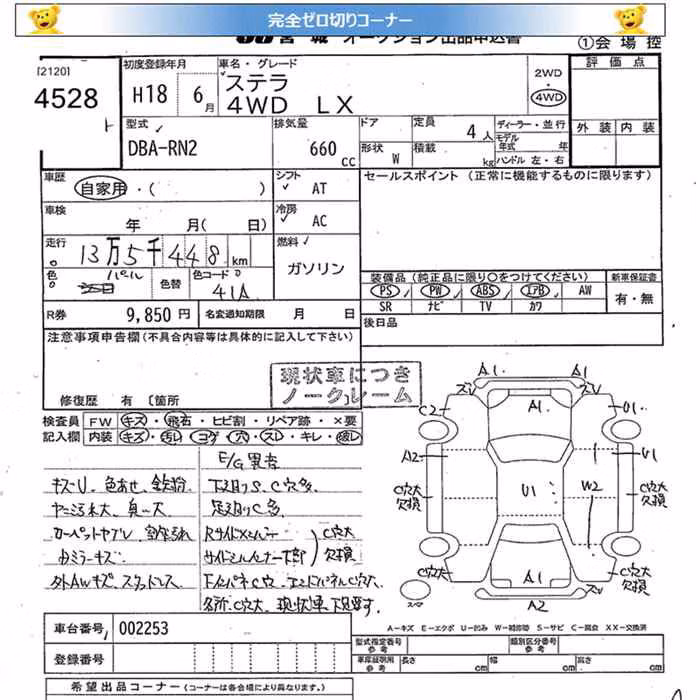 完全ゼロ切りコーナー
JU宮城 オークション出品申込書
①会場控
[2120]
4528
初度登録年月
H18 6月
車名・グレード
ステラ
4WD LX
2WD
4WD
評価点
外装 内装
型式
DBA-RN2
排気量
660 cc
ドア
形状 W
定員 4人
積載 kg
ディーラー・並行
モデル年式 年
ハンドル 左・右
車歴
自家用・( )
シフト
AT
セールスポイント (正常に機能するものに限ります)
車検
年 月( 日)
冷房
AC
走行
13万5千448km
燃料
ガソリン
色 パール
色替
色コード
41A
装備品(純正品に限り○をつけてください)
新車保証書
PS PW ABS エアB AW
SR ナビ TV カワ
有・無
R券 9,850円
名変通知期限 月 日
後日品
注意事項申告欄(不具合内容等は具体的に記入して下さい)
現状車につき
ノークレーム
修復歴 有 〔箇所
検査員 FW キズ・飛石・ヒビ割・リペア跡・×要
記入欄 内装 キズ・汚レ・コゲ・穴・スレ・キレ・破レ
E/G異音
キズーU、色あせ、鉄粉
下廻りS、C穴多
ヤニ汚れ大、臭い大
足廻りC多
カーペットヤブレ、
ミラーキズ
C穴大
欠損
外AWキズ、スタッドレス
各所C穴大、現状車、下見要す。
A1 A1
ズレ ズレ
C2 A1 U1
A2 U1
C穴大
欠損
U1 W2
C穴大
欠損
C穴大 A1 C穴大
欠損
スペア
ズレ
A2
A-キズ E-エクボ U-凹み W-補修跡 S-サビ C-腐食 XX-交換済
車台番号 002253
登録番号
型式指定番号
参考
類別区分番号
参考
車庫証明用
参考
長さ cm 幅 cm 高さ cm
希望出品コーナー(コーナーは各会場により異なります。)